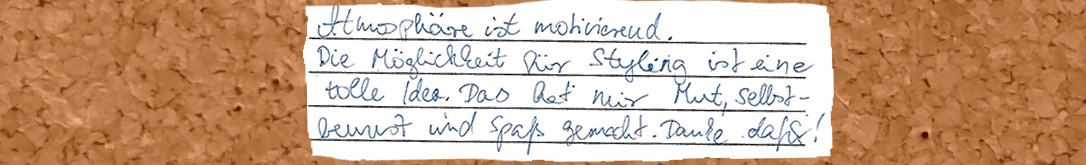 Atmosphäre ist motivierend.
Die Möglichkeit für Styling ist eine
tolle Idee. Das hat mir Mut, selbst-
bewusst und Spaß gemacht. Danke dafür!